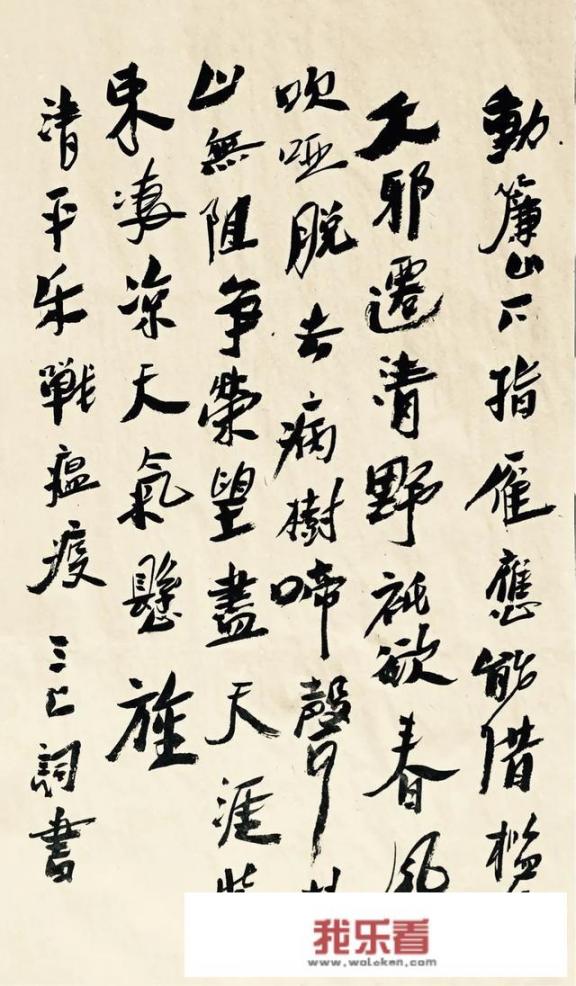 動簾山下指雁應能借
邪遷清野祇欲春風
吹啞脫去病樹啼聲可
山無阻争榮望盡天涯
東凄涼天氣懸旌
清平乐戰瘟疫 三詞書
我乐看
www.woleken.com